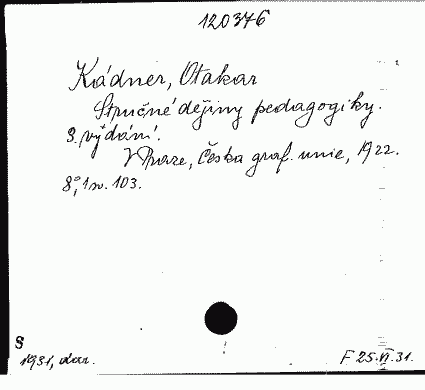 120376
Kádner, Otakar
Stručné dějiny pedagogiky.
3. vydání.
V Praze, Česka graf. unie, 1922.
8°, 1 sv. 103.
S
1931, dar.
F 25.VI.31.